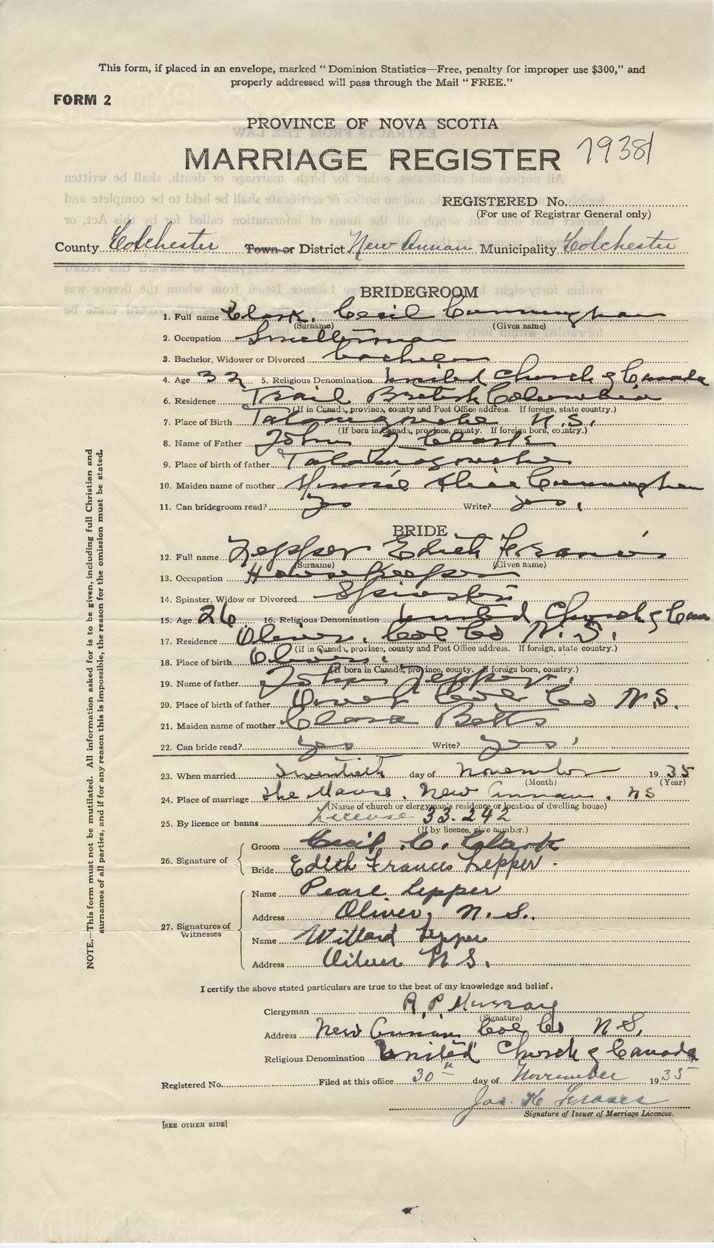 This form, if placed in an envelope, marked "Dominion Statistics—Free, penalty for improper use $300," and
properly addressed will pass through the Mail "FREE."
FORM 2
PROVINCE OF NOVA SCOTIA
MARRIAGE REGISTER 1938
REGISTERED No.
(For use of Registrar General only)
County Colchester Town or District New Annan Municipality Colchester
BRIDEGROOM
1. Full name Clark, Cecil Cunningham
(Surname) (Given name)
2. Occupation Smelterman
3. Bachelor, Widower or Divorced bachelor
4. Age 32 5. Religious Denomination United Church of Canada
6. Residence Trail British Columbia
(If in Canada, province, county and Post Office address. If foreign, state country.)
7. Place of Birth Tatamagouche N.S.
(If born in Canada, province, county. If foreign born, country.)
8. Name of Father John J Clark
9. Place of birth of father Tatamagouche
10. Maiden name of mother Minnie Alice Cunningham
11. Can bridegroom read? Yes Write? Yes.
BRIDE
12. Full name Lepper Edith Francis
(Surname) (Given name)
13. Occupation Housekeeper
14. Spinster, Widow or Divorced Spinster
15. Age 26 16. Religious Denomination United Church of Can
17. Residence Oliver, Col Co N.S.
(If in Canada, province, county and Post Office address. If foreign, state country.)
18. Place of birth Oliver.
(If born in Canada, province, county. If foreign born, country.)
19. Name of father John Lepper.
20. Place of birth of father Col Co N.S.
21. Maiden name of mother Clara Betts
22. Can bride read? Yes Write? Yes!
23. When married twentieth day of November 1935
(Month) (Year)
24. Place of marriage The Manse, New Annan, NS
(Name of church or clergyman's residence or location of dwelling house)
25. By licence or banns License 33.242
(If by licence, give number.)
26. Signature of Groom Cecil C. Clark
Bride Edith Frances Lepper.
27. Signatures of Witnesses
Name Pearl Lepper
Address Oliver, N.S.
Name Willard Lepper
Address Oliver N.S.
I certify the above stated particulars are true to the best of my knowledge and belief.
Clergyman R. P. Murray
(Signature)
Address New Annan Col Co N.S.
Religious Denomination United Church of Canada
Registered No. Filed at this office 30th day of November 1935
Jas. H. Frasers
Signature of Issuer of Marriage Licences.
[SEE OTHER SIDE]
NOTE.—This form must not be mutilated. All information asked for is to be given, including full Christian and
surnames of all parties, and if for any reason this is impossible, the reason for the omission must be stated.